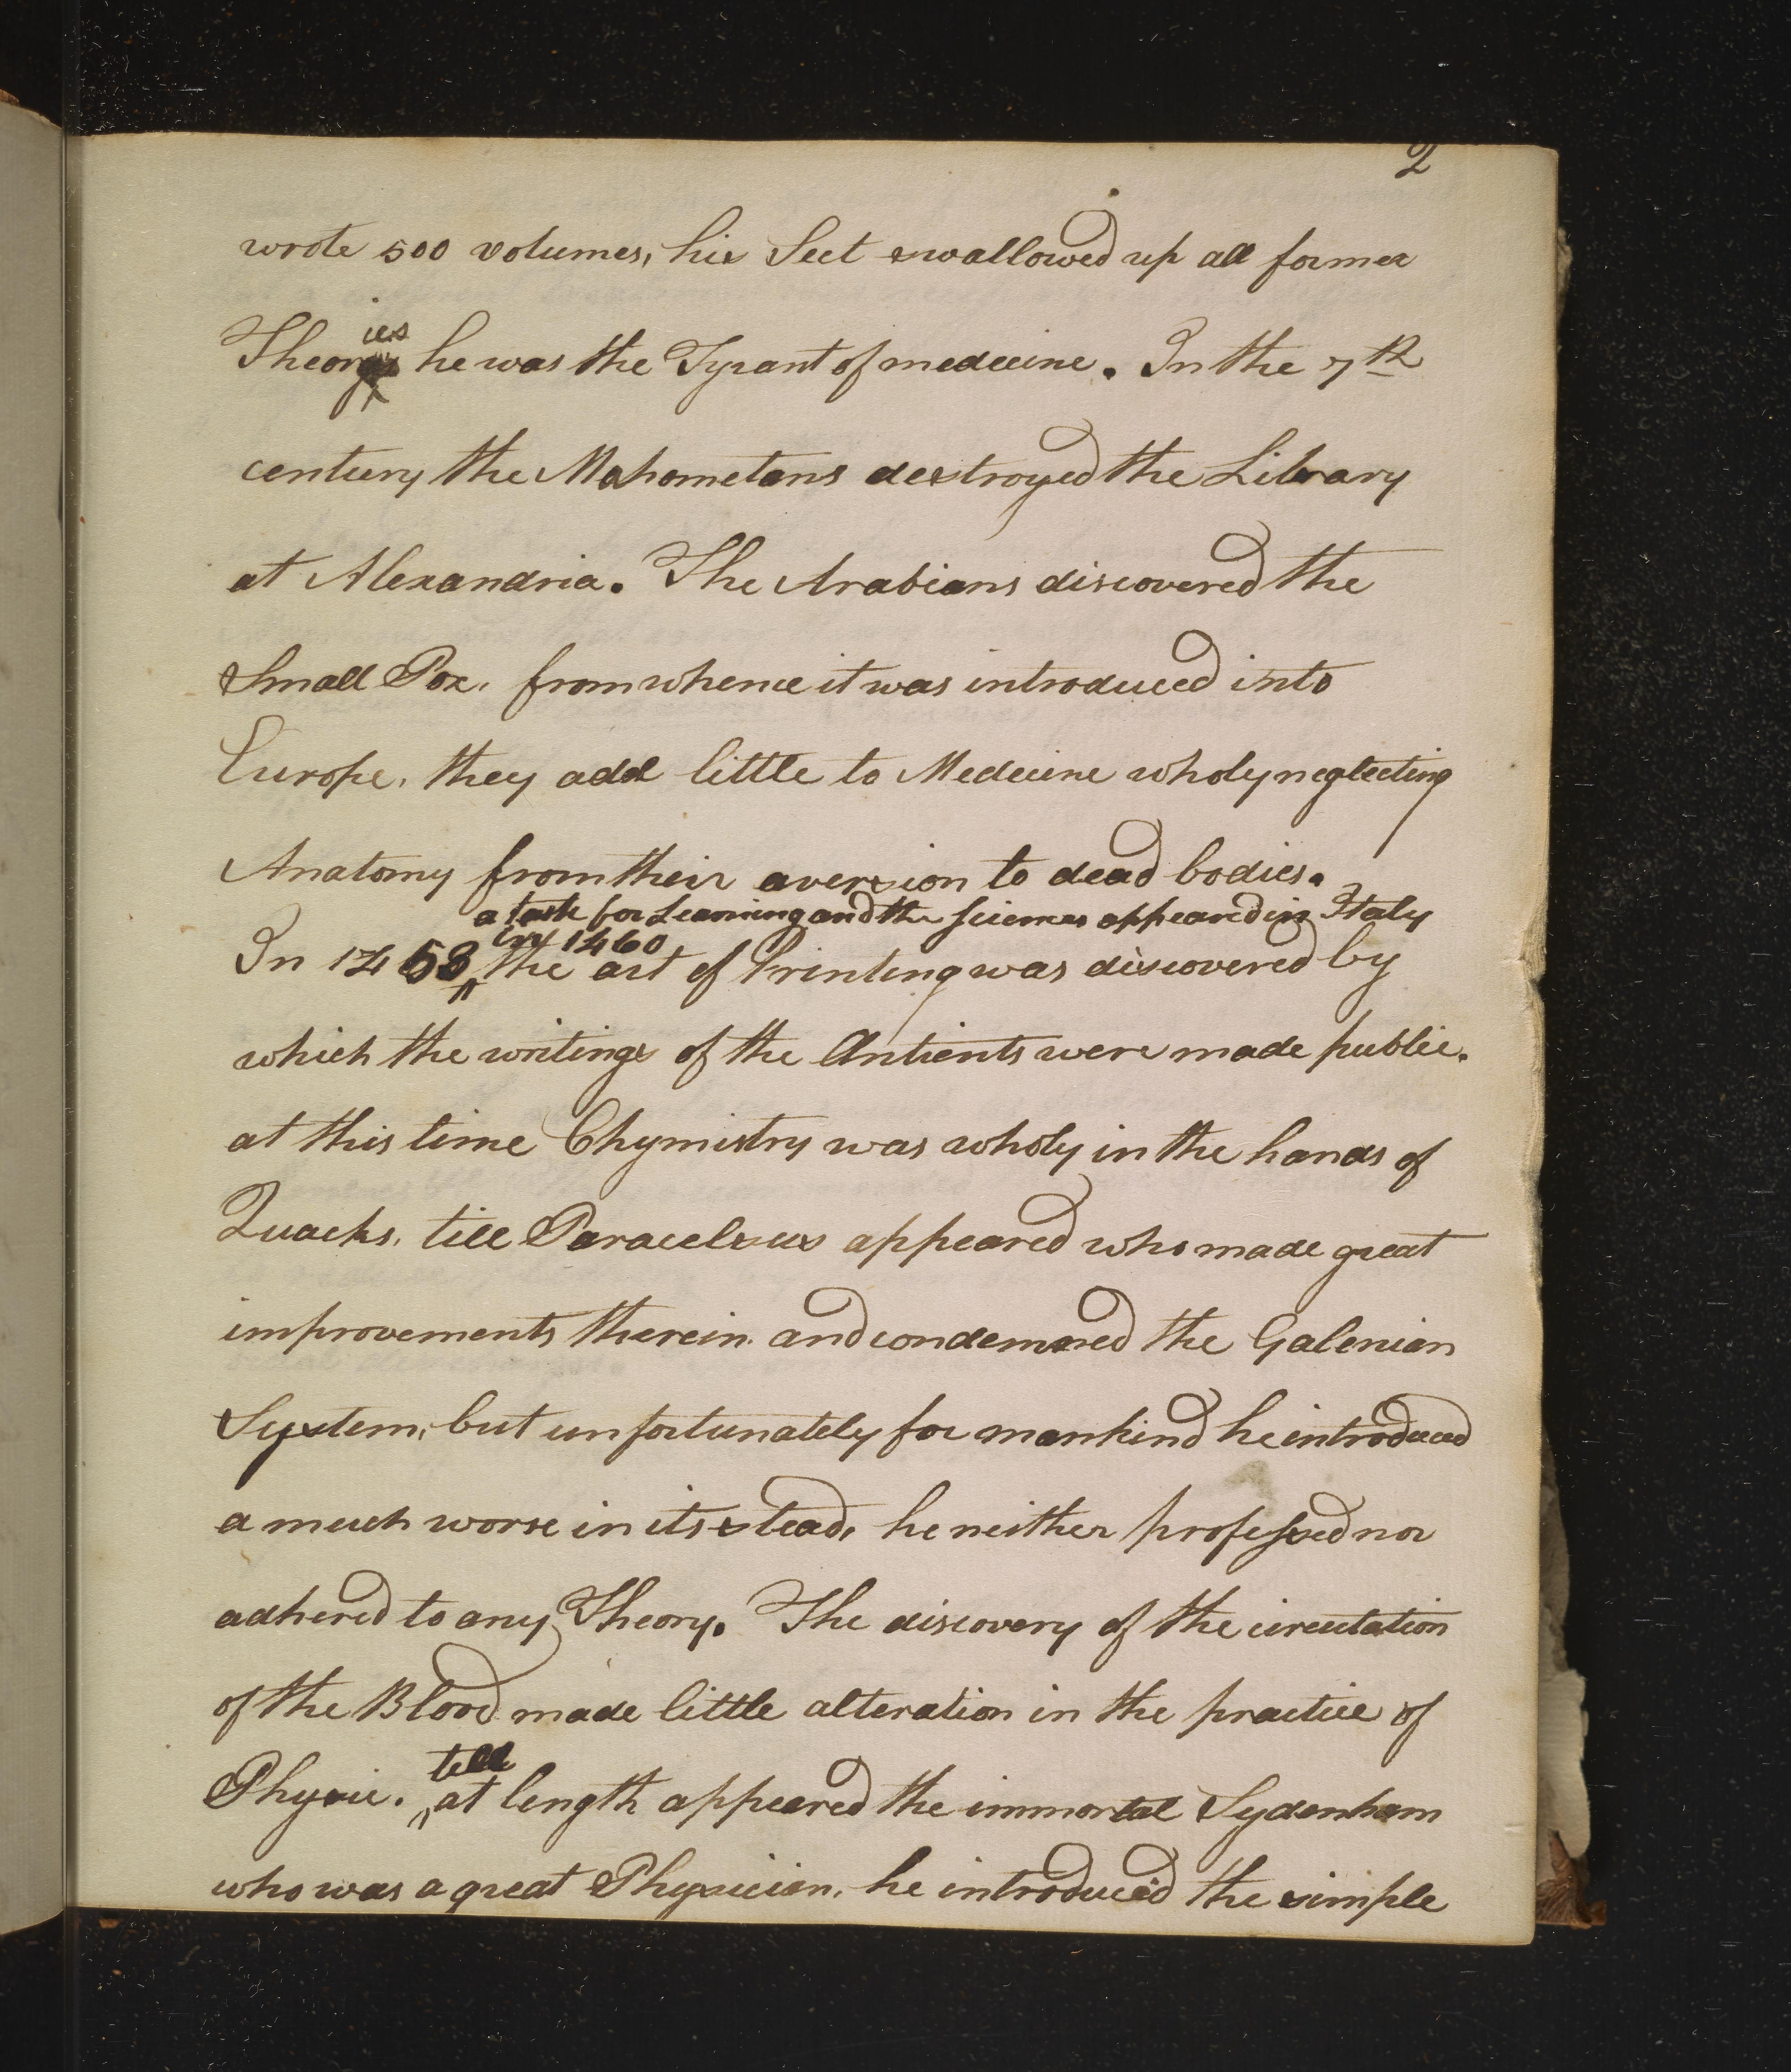 2
wrote 500 volumes, his Sect swallowed up all former
Theories he was the Tyrant of medecine. In the 7th
century the Mahometans destroyed the Library
at Alexandria. The Arabians discovered the
Small Pox. from whence it was introduced into
Europe, they add little to Medecine wholy neglecting
Anatomy from their aversion to dead bodies.
a taste for Learning and the sciences appeared in Italy
in 1460
In 1458 the art of Printing was discovered by
which the writings of the Antients were made public.
at this time Chymistry was wholy in the hands of
Quacks, till Paracelsus appeared who made great
improvements therein. and condemned the Galenian
System, but unfortunately for mankind he introduced
a much worse in its stead, he neither professed nor
adhered to any Theory. The discovery of the circulation
of the Blood made little alteration in the practice of
till
Physic. at length appeared the immortal Sydenham
who was a great Physician. he introduced the simple